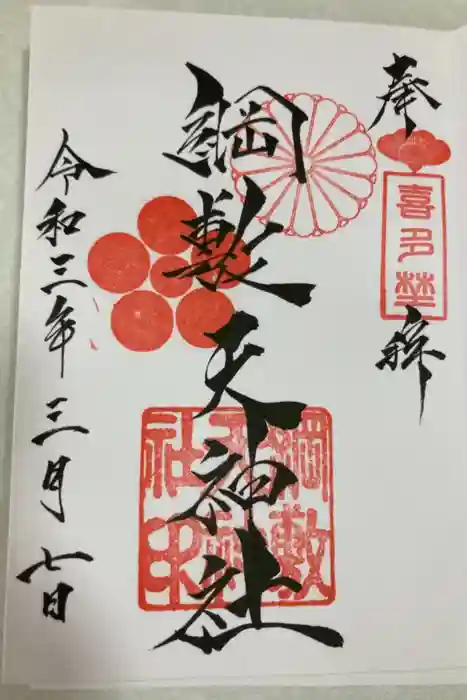 奉拝
喜多埜
綱敷天神社
綱敷天神社印
令和三年三月七日